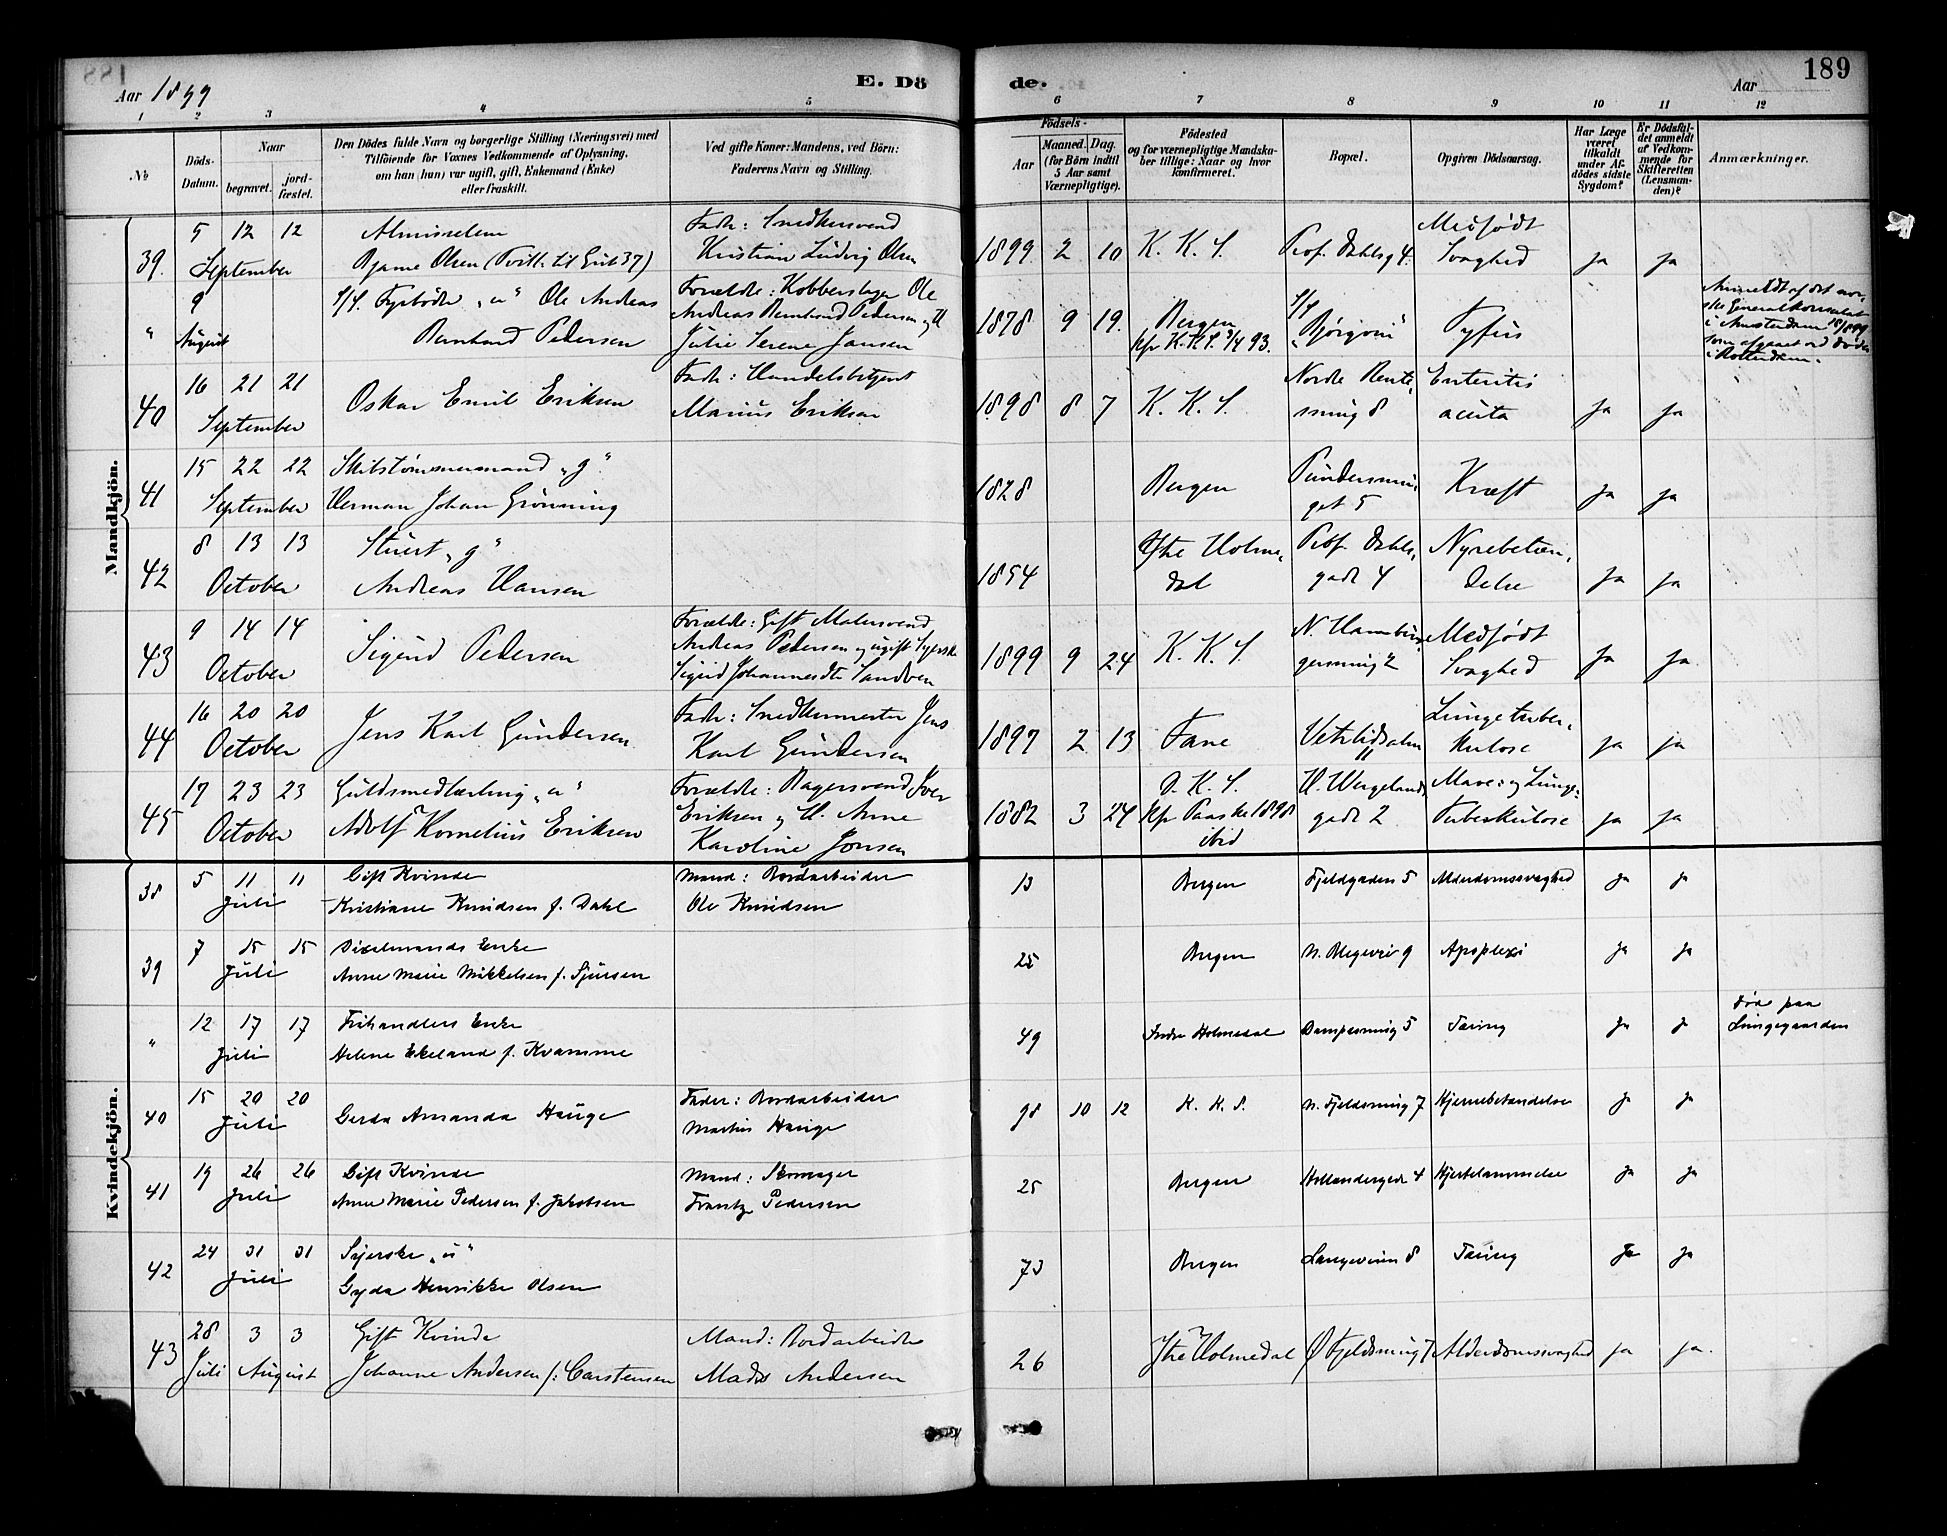 Aar 1899
E. Dö
de.
Aar
189
1 2 3 4 5 6 7 8 9 10 11 12
No
Döds-Datum.
Naar
begravet.
jord-fæstet.
Den Dödes fulde Navn og borgerlige Stilling (Næringsvei) med
Tilföiende for Voxnes Vedkommende af Oplysning,
om han (hun) var ugift, gift, Enkemand (Enke)
eller fraskilt.
Ved gifte Koner: Mandens, ved Börn:
Faderens Navn og Stilling.
Födsels-
Aar
Maaned. Dag.
(for Börn indtil
5 Aar samt
Værnepligtige).
Födested
og for værnepligtige Mandska-
ber tillige: Naar og hvor
konfirmeret.
Bopæl.
Opgiven Dödsaarsag.
Har Læge
været
tilkaldt
under Af-
dödes sidste
Sygdom?
Er Dödsfal-
det anmeldt
af Vedkom-
mende for
Skifteretten
(Lensman-
den)?
Anmærkninger.
Mandkjön.
39. 5 12 12 September
Almisselem
Bjarne Olsen (Tvill. til Gut 37)
Fader: Snedkersvend
Kristian Ludvig Olsen
1899 2 10 K. K. S. Prof. Dahlsg 4. Medfødt Svaghed ja ja
" 9 August
S/S. Fyrbøder "u" Ole Andreas
Bernhard Pedersen
Forældre: Kobberslager Ole
Andreas Bernhard Pedersen og H
Julie Serene Jansen
1878 9 19. Bergen
kfr K.K.S. 9/4 93.
S/S "Bjørgvin" Tyfus
Anmeldt af det nor-
ske Generalkonsulat
i Amsterdam 18/8 99
som afgaaet ved Døden
i Rotterdam.
40 16 21 21 September
Oskar Emil Eriksen
Fader: Handelsbetjent
Marius Eriksen
1898 8 7 K. K. S. Nordre Rente,
smug 8 Enteritis
acuta ja ja
41 15 22 22 September
Skibstømmermand "g".
Herman Johan Grønning
1828 Bergen Pundersmu,
get 5 Kræft ja ja
42 8 13 13 October
Stuert "g"
Andreas Hansen
1854 Ytre Holme,
dal Prof. Dahls,
gade 4 Nyrebetæn,
delse ja ja
43 9 14 14 October
Sigurd Pedersen
Forældre: Gift Malersvend
Andreas Pedersen og ugift Syerske
Sigrid Johannesdtr Sandven
1899 9 24 K. K. S. N. Hambur,
gersmug 2 Medfødt
Svaghed ja ja
44 16 20 20 October
Jens Karl Gundersen
Fader: Snedkermester Jens
Karl Gundersen
1897 2 13 Fane Vetrlidsalm
11 Lungetuber,
kulose ja ja
45 17 23 23 October
Guldsmedlærling "u"
Adolf Kornelius Eriksen
Forældre: Bagersvend Iver
Eriksen og H. Anne
Karoline Jonsen
1882 3 24 D. K. S.
Kfr Paaske 1898
ibid H. Wergelands,
gade 2 Mave: og Lunge:
Tuberkulose ja ja
Kvindekjön.
38 5 11 11 Juli
Gift Kvinde
Kristiane Knudsen f. Dahl
Mand: Bordarbeider
Ole Knudsen
13 Bergen Fjeldgaden 5 Alderdomssvaghed ja ja
39 7 15 15 Juli
Enke
Anne Marie Mikkelsen f. Sjursen
25 Bergen N. Blegevei 9 Apoplexi ja ja
" 12 17 17 Juli
Frihandlers Enke
Helene Ekeland f. Kvamme
49 Indre Holmedal Dampesmug 5 Tæring ja ja
Død paa
Lungegaarden
40 15 20 20 Juli
Gerda Amanda Hauge
Fader: Bordarbeider
Martin Hauge
98 10 12 K. K. S. N. Fjeldsmug 7 Hjernebetændelse ja ja
41 19 26 26 Juli
Gift Kvinde
Anne Marie Pedersen f. Jakobsen
Mand: Skomager
Frantz Pedersen
25 Bergen Hollendergade 4 Hjertelammelse ja ja
42 24 31 31 Juli
Syerske "u"
Gyda Henrikke Olsen
73 Bergen Langeveien 8 Tæring Ja ja
43 28 Juli 3 3 August
Gift Kvinde
Johanne Andersen f: Carstensen
Mand: Bordarbeider
Mads Andersen
26 Ytre Holmedal Ø Fjeldsmug 7 Alderdomssvaghed ja ja.